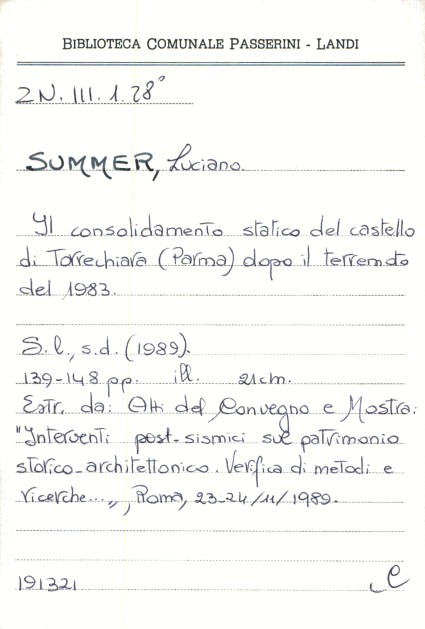 BIBLIOTECA COMUNALE PASSERINI - LANDI
2N. III. 1. 28°
SUMMER, Luciano.
Il consolidamento statico del castello
di Torrechiara (Parma) dopo il terremoto
del 1983.
S. l., s.d. (1989).
139-148 pp. ill. 21 cm.
Estr. da: Atti del Convegno e Mostra:
"Interventi post-sismici sul patrimonio
storico-architettonico. Verifica di metodi e
ricerche...", Roma, 23-24/11/1989.
191321 C